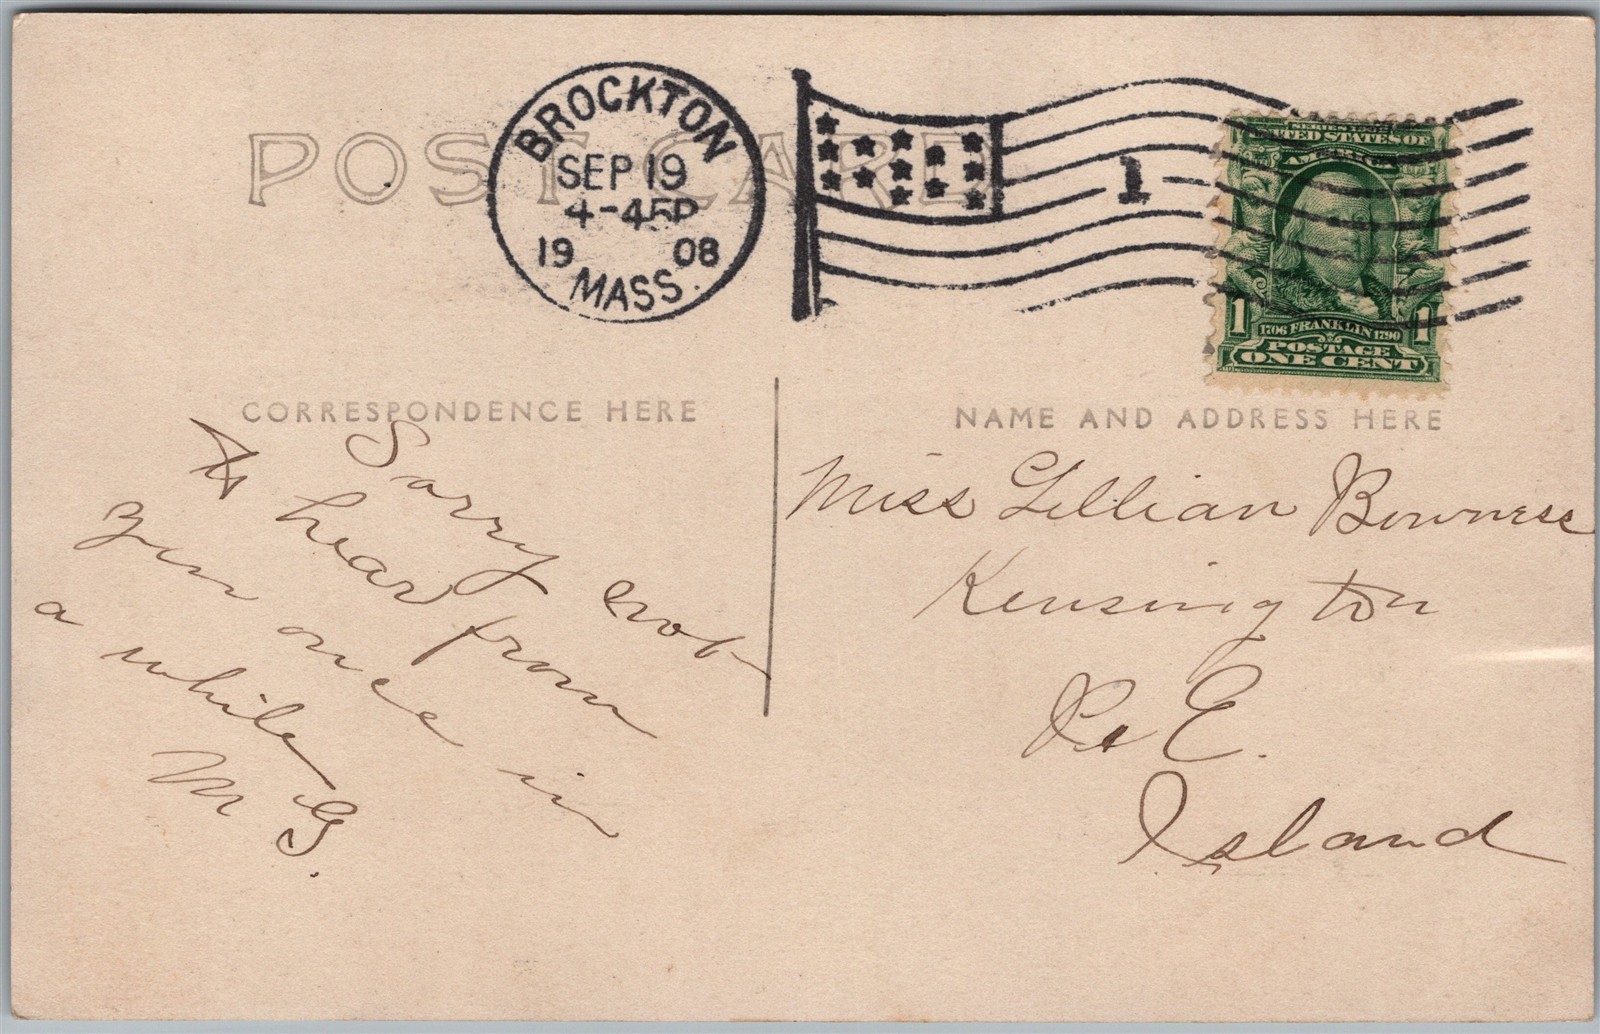 POST CARD
BROCKTON
SEP 19
4-45P
19 08
MASS.
1
SERIES 1902
UNITED STATES OF
AMERICA
1 1706 FRANKLIN 1790 1
POSTAGE
ONE CENT
CORRESPONDENCE HERE
Sorry not
to hear from
you once in
a while
M G.
NAME AND ADDRESS HERE
Miss Lillian Bowness
Kensington
P. E.
Island